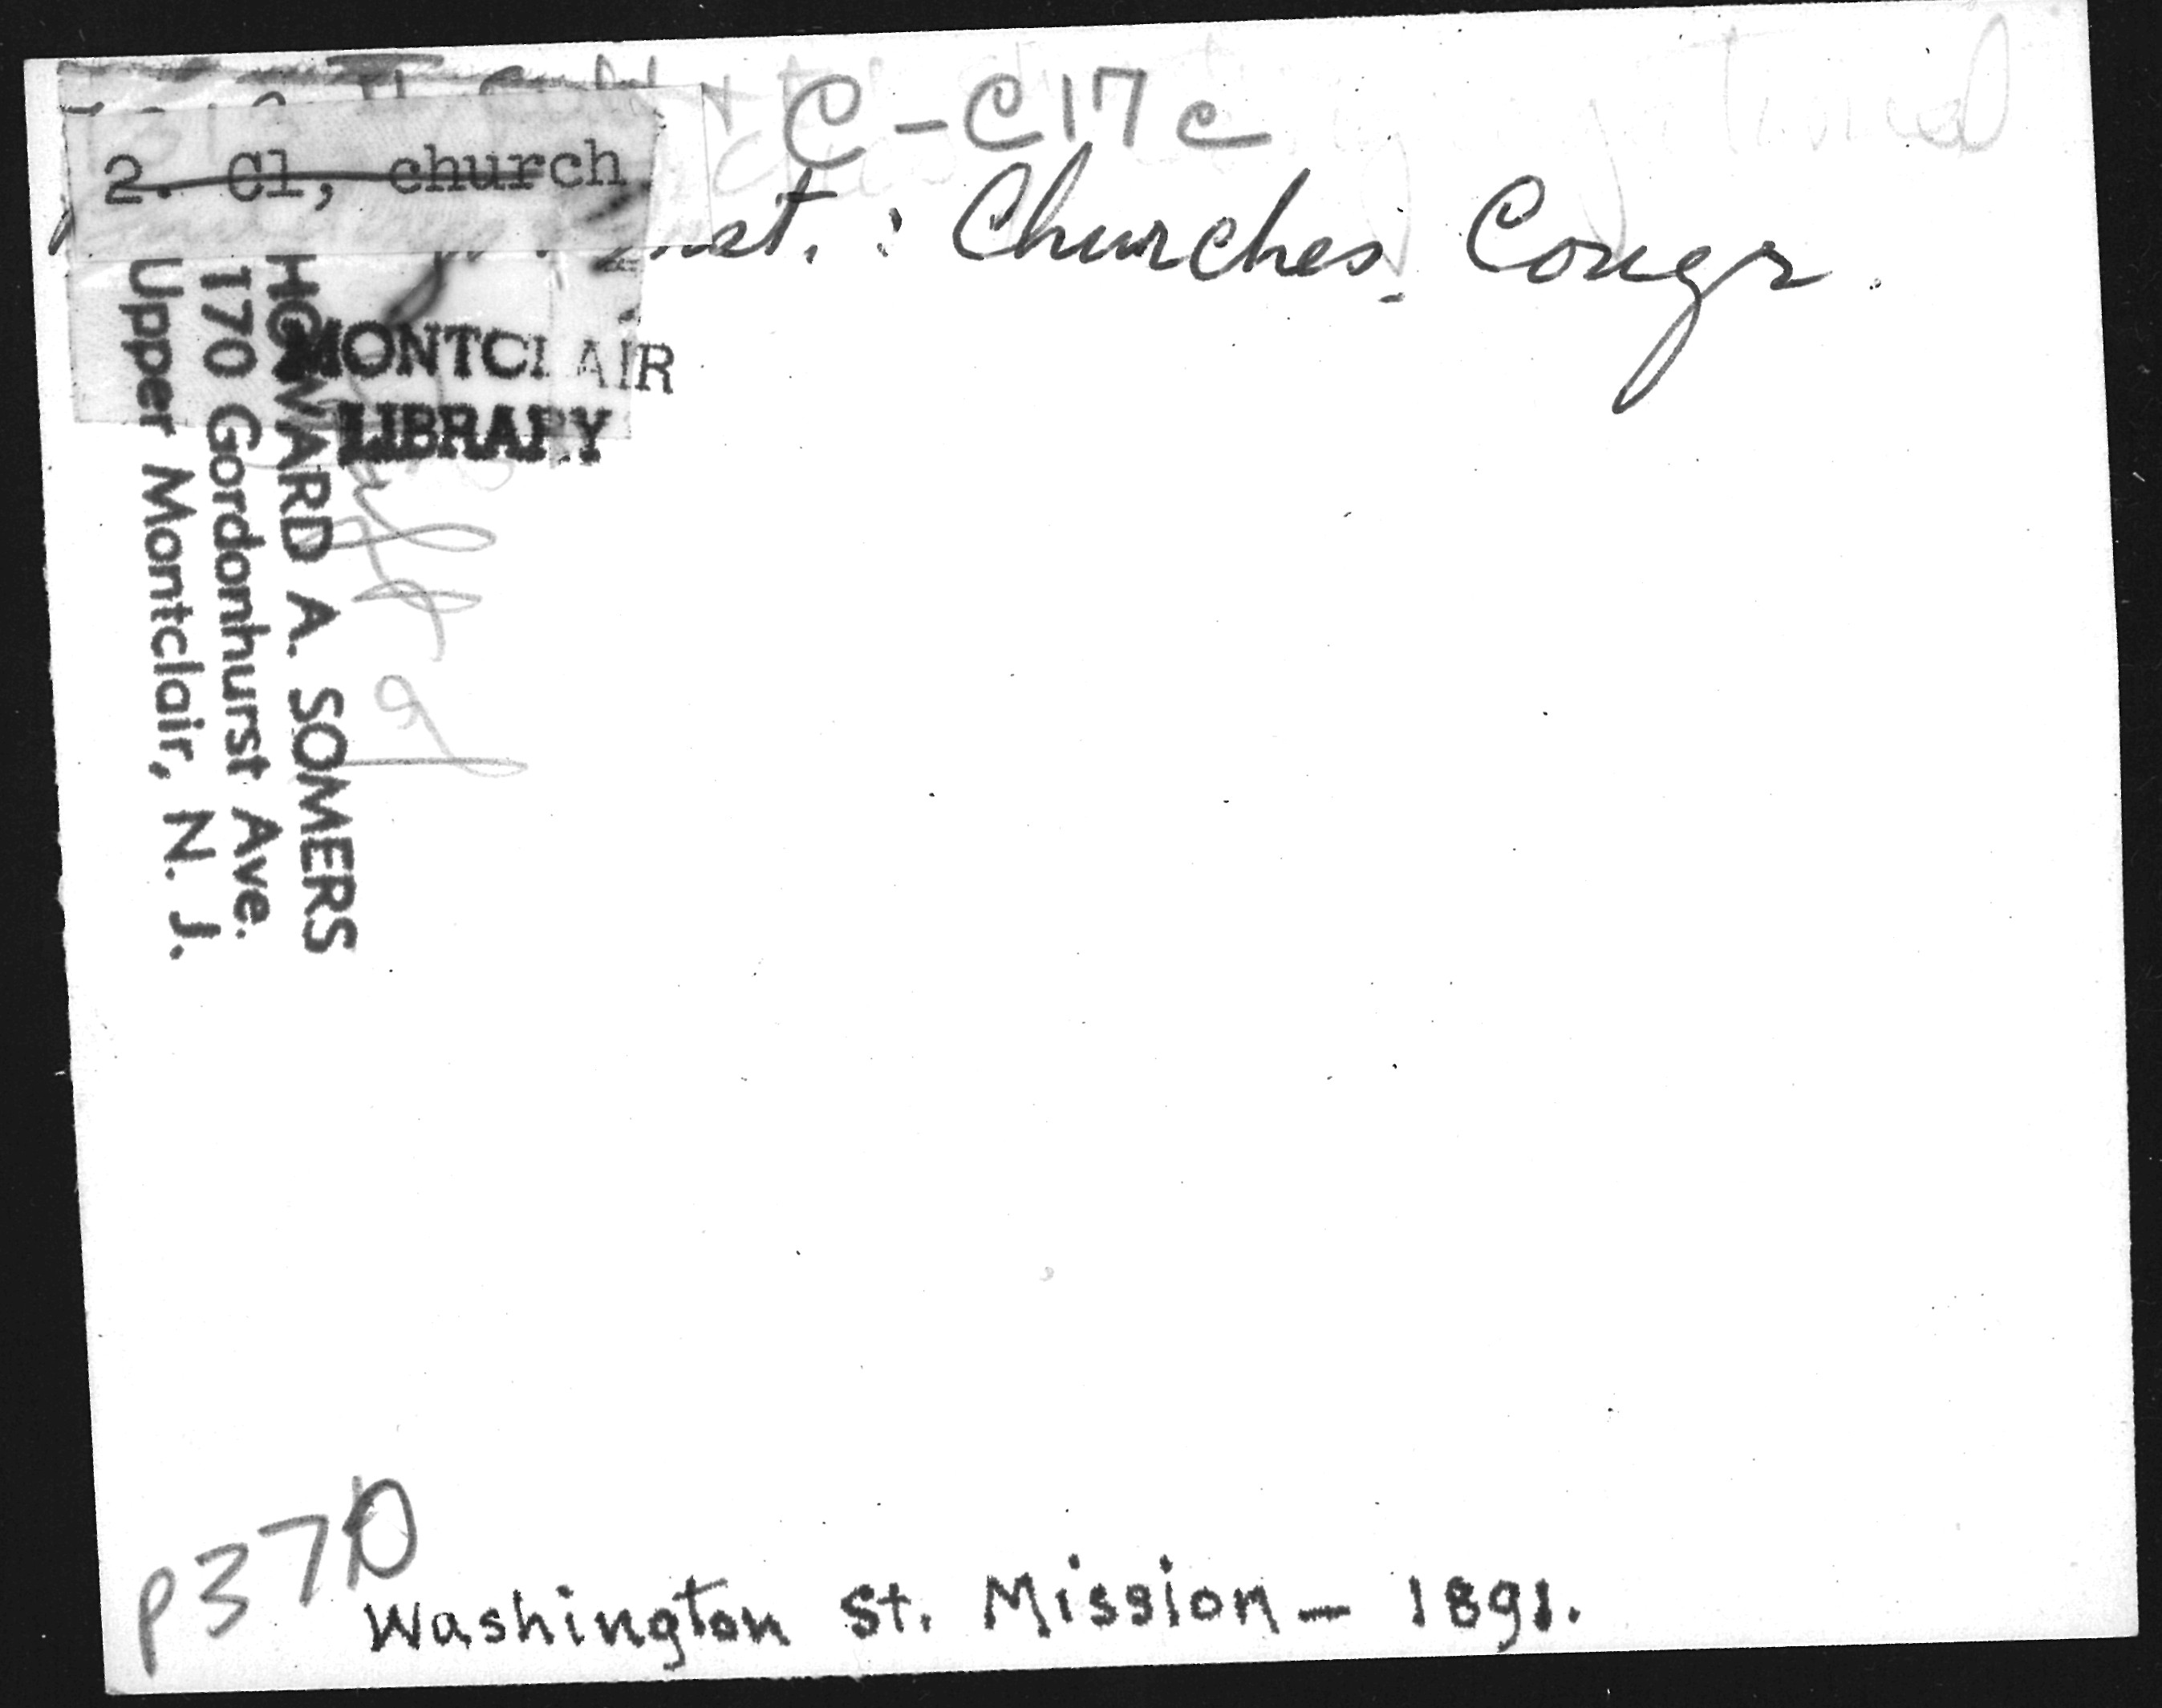 C-C17c
2. Cl, church
Inst. : Churches, Congr.
MONTCLAIR
LIBRARY
HOWARD A. SOMERS
170 Gordonhurst Ave.
Upper Montclair, N. J.
P370
Washington St. Mission – 1891.